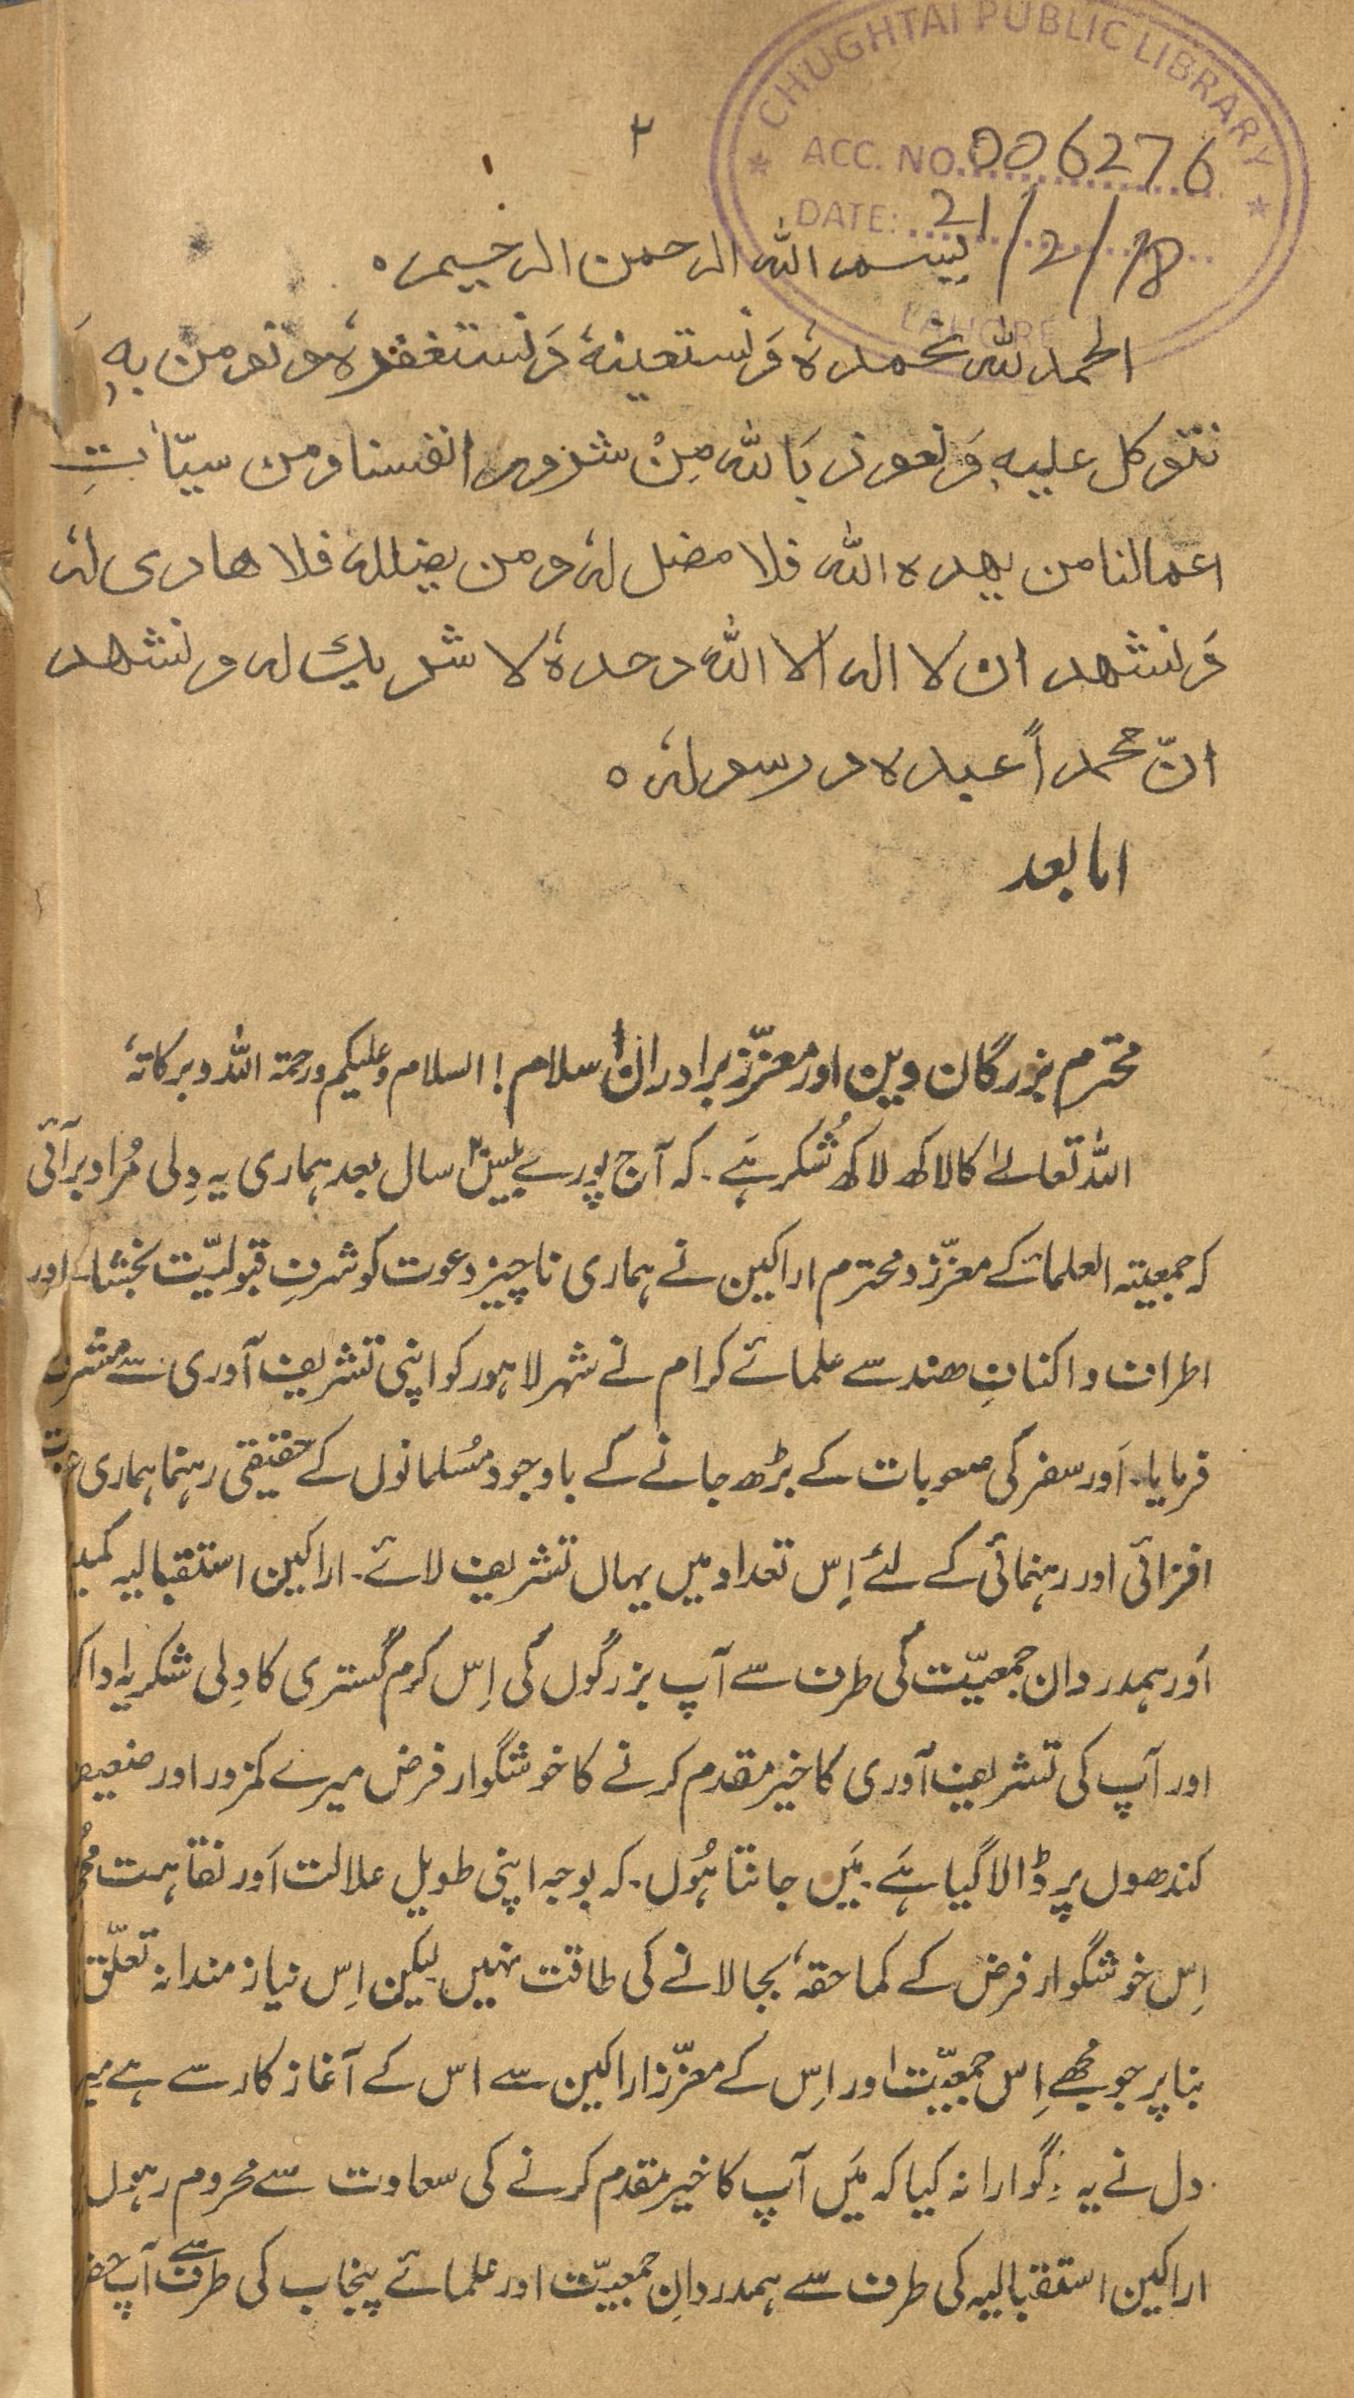 CHUGHTAI PUBLIC LIBRARY
ACC. NO. 006276
DATE: 21/2/18
LAHORE
۲
بسم الله الرحمن الرحیم ہ
الحمد للہ نحمدہٗ وَنستعینہٗ وَنستغفرہٗ ونومن بہٖ وَ
نتوکل علیہٖ وَنعوذ بَاللہ مِنْ شرور انفسنا ومن سیّاٰتِ
اعمالنا من یھدہ اللہ فلا مضل لہٗ ومن یضللہ فلا ھادی لہٗ
وَنشھد ان لا الہ الا اللہ وحدہٗ لا شریک لہ ونشھد
انّ محمداً عبدہ ورسولہٗ ہ
اما بعد
محترم بزرگان دین اور معزّز برادران اسلام! السلام وعلیکم ورحمۃ اللہ وبرکاتہٗ
اللہ تعالےٰ کا لاکھ لاکھ شُکر ہَے۔ کہ آج پورے بیس سال بعد ہماری یہ دِلی مُراد بر آئی
کہ جمعیتہ العلماء کے معزّز و محترم اراکین نے ہماری ناچیز دعوت کو شرفِ قبولیّت بخشا۔ اور
اطراف واکنافِ ھند سے علمائے کرام نے شہر لاہور کو اپنی تشریف آوری سے مشرف
فرمایا۔ اَور سفر کی صعوبات کے بڑھ جانے کے باوجود مسُلمانوں کے حقیقی رہنما ہماری
افزائی اور رہنمائی کے لئے اِس تعداد میں یہاں تشریف لائے۔ اراکین استقبالیہ
اَور ہمدردان جمعیّت کی طرف سے آپ بزرگوں کی اِس کرم گستری کا دِلی شکریہ ادا
اور آپ کی تشریف آوری کا خیر مقدم کرنے کا خوشگوار فرض میرے کمزور اور
کندھوں پر ڈالا گیا ہَے۔ مَیں جانتا ہُوں۔ کہ بوجہ اپنی طویل علالت اَور نقاہت
اِس خوشگوار فرض کے کما حقہٗ بجا لانے کی طاقت نہیں لیکن اِس نیازمندانہ تعلّق
بنا پر جو مجھے اِس جمعیّت اور اِس کے معزّز اراکین سے اس کے آغاز کار سے ہے
دل نے یہ گوارا نہ کیا کہ مَیں آپ کا خیر مقدم کرنے کی سعادت سے محروم رہوں
اراکین استقبالیہ کی طرف سے ہمدردانِ جمعیّت اور علمائے پنجاب کی طرف سے آپ